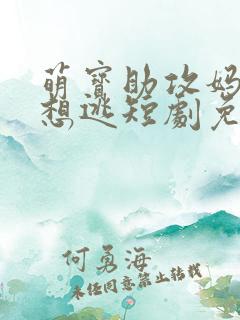 萌寶助攻媽
想逃短劇免
何勇海
未经同意禁止转载